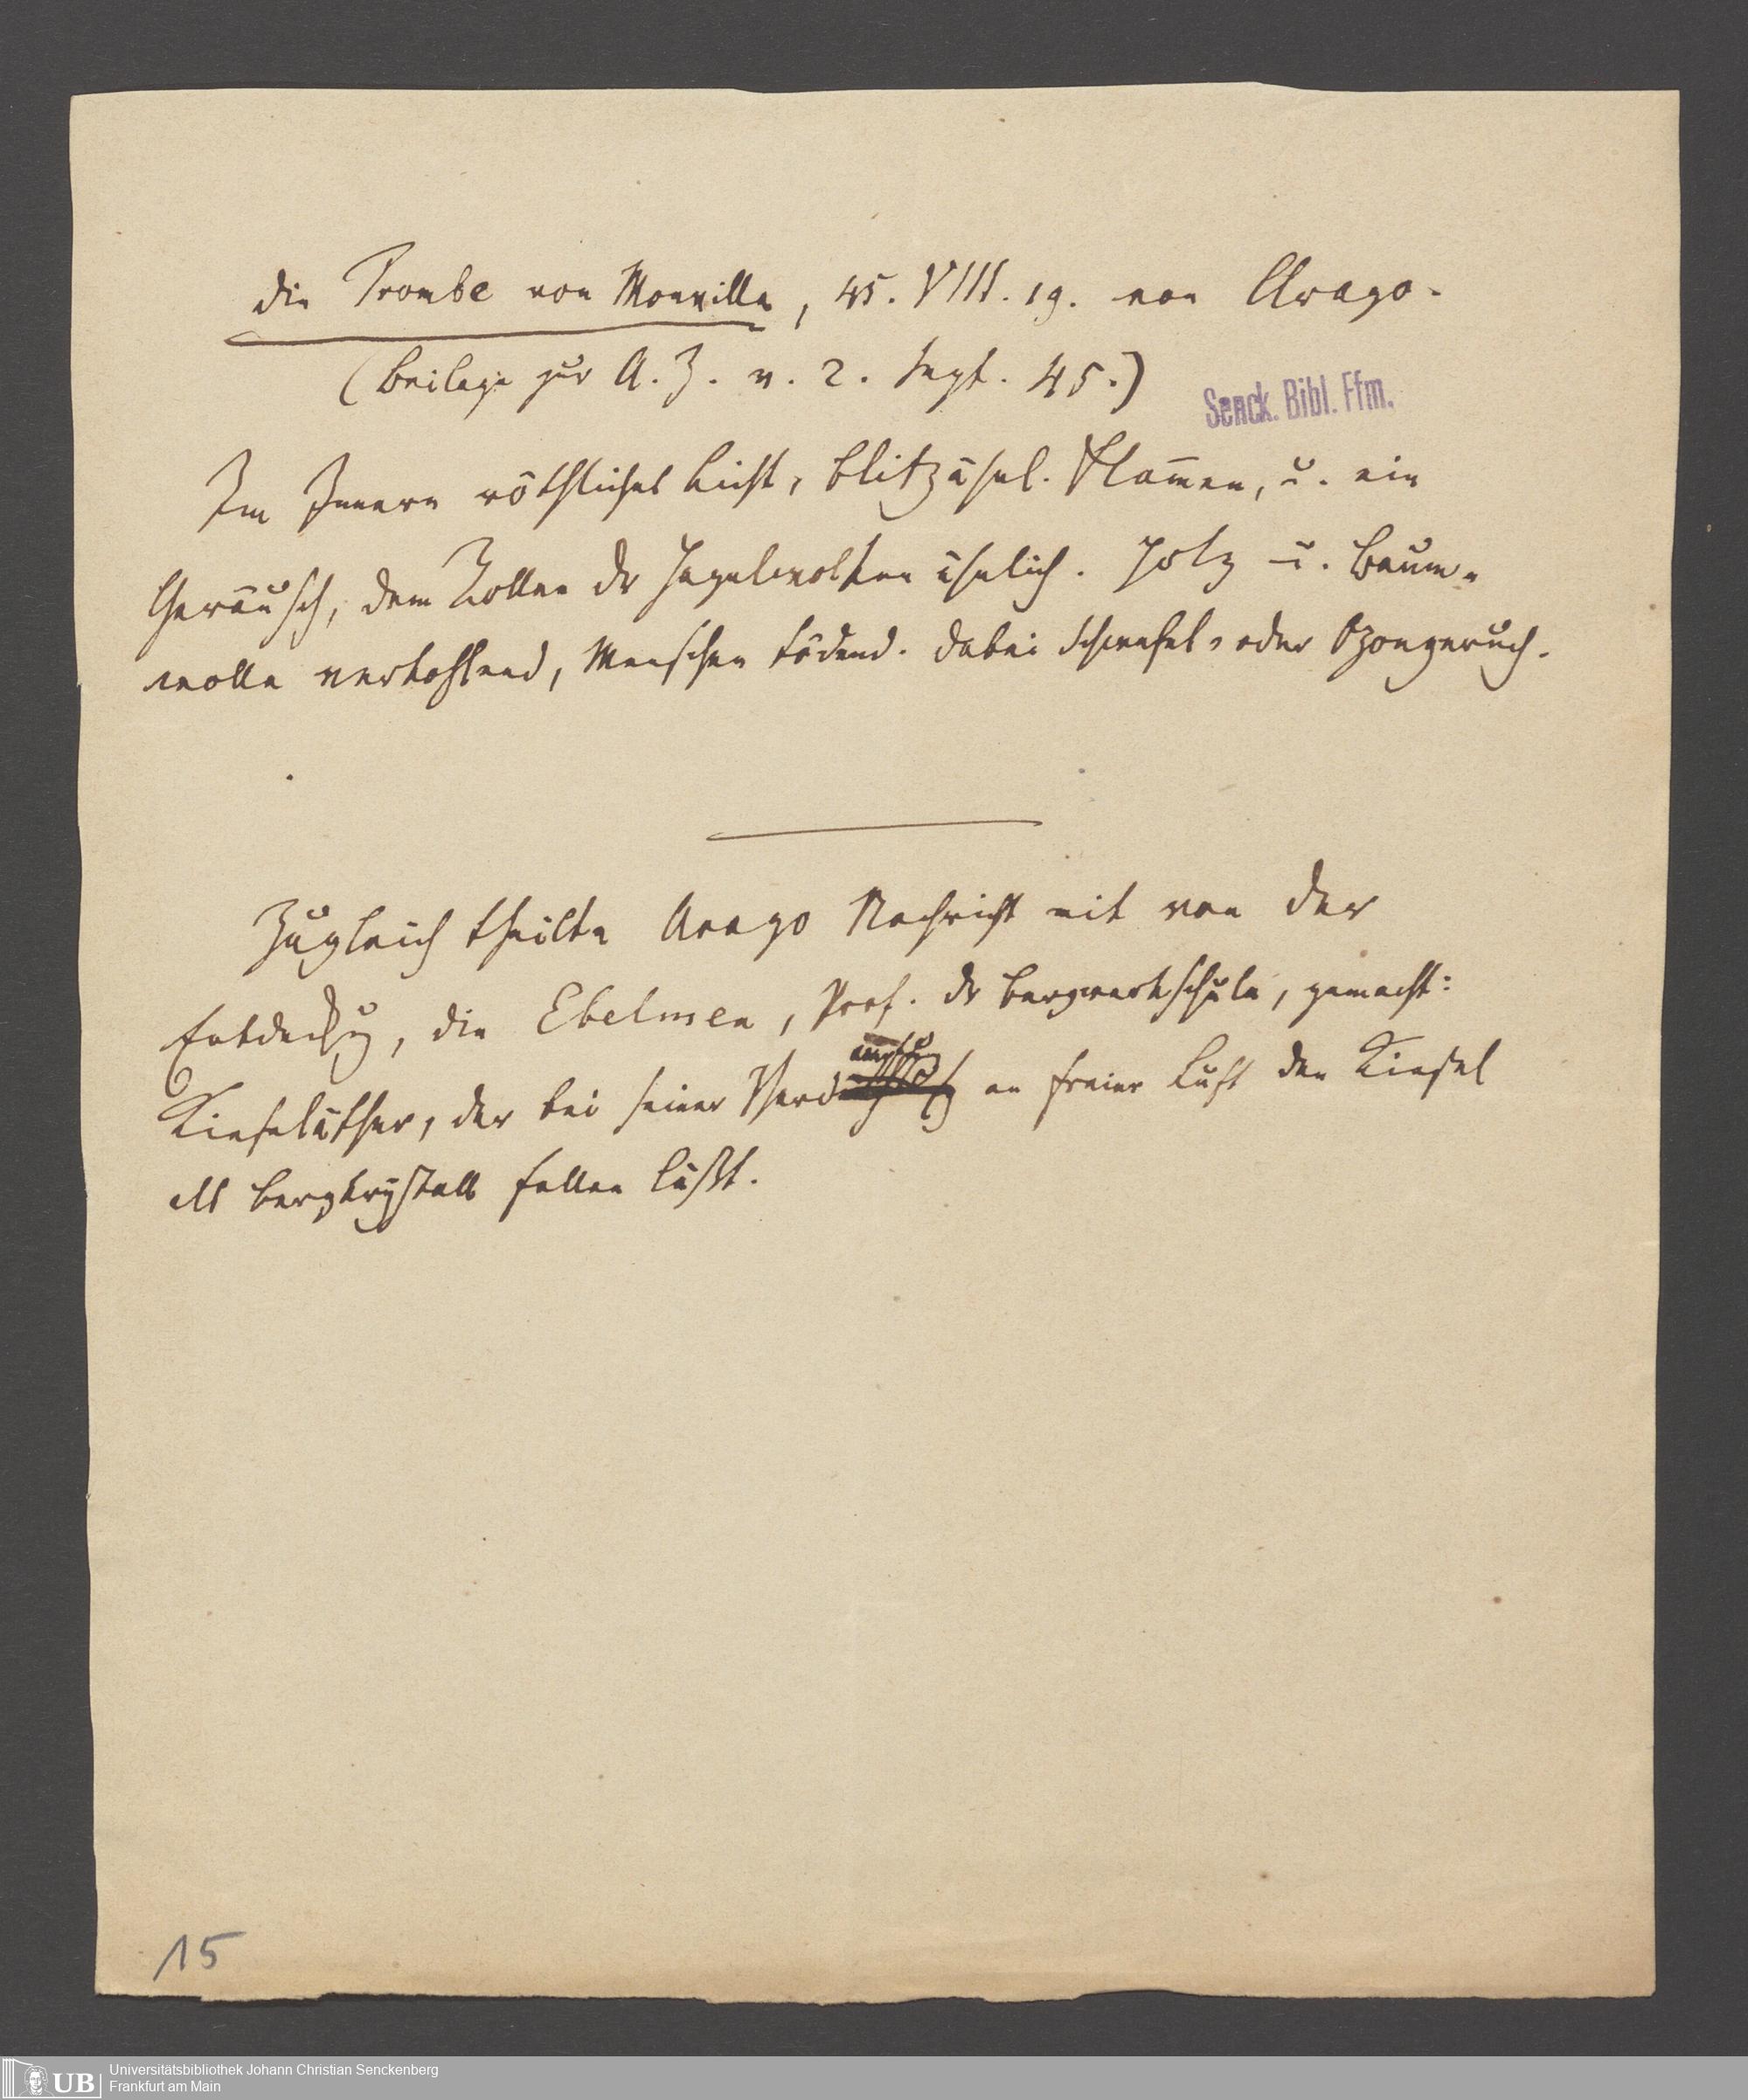 Die Trombe von Monville, 45. VIII. 19. von Arago.
(Beilage zur A. Z. v. 2. Sept. 45.)
Senck. Bibl. Ffm.
Im Innern röthliches Licht, blitzähnl. Flam̄en, u. ein
Geräusch, dem Rollen dr Hagelwolken ähnlich. Holz u. Baum-
wolle verkohlend, Menschen tödend. Dabei Schwefel- oder Ozongeruch.
Zugleich theilte Arago Nachricht mit von der
Entdeckg, die Ebelmen, Prof. dr Bergwerkschule, gemacht:
Kieseläther, der bei seiner Verdampfung an freier Luft den Kiesel
als Bergkrystall fallen läßt.
15
UB
Universitätsbibliothek Johann Christian Senckenberg
Frankfurt am Main